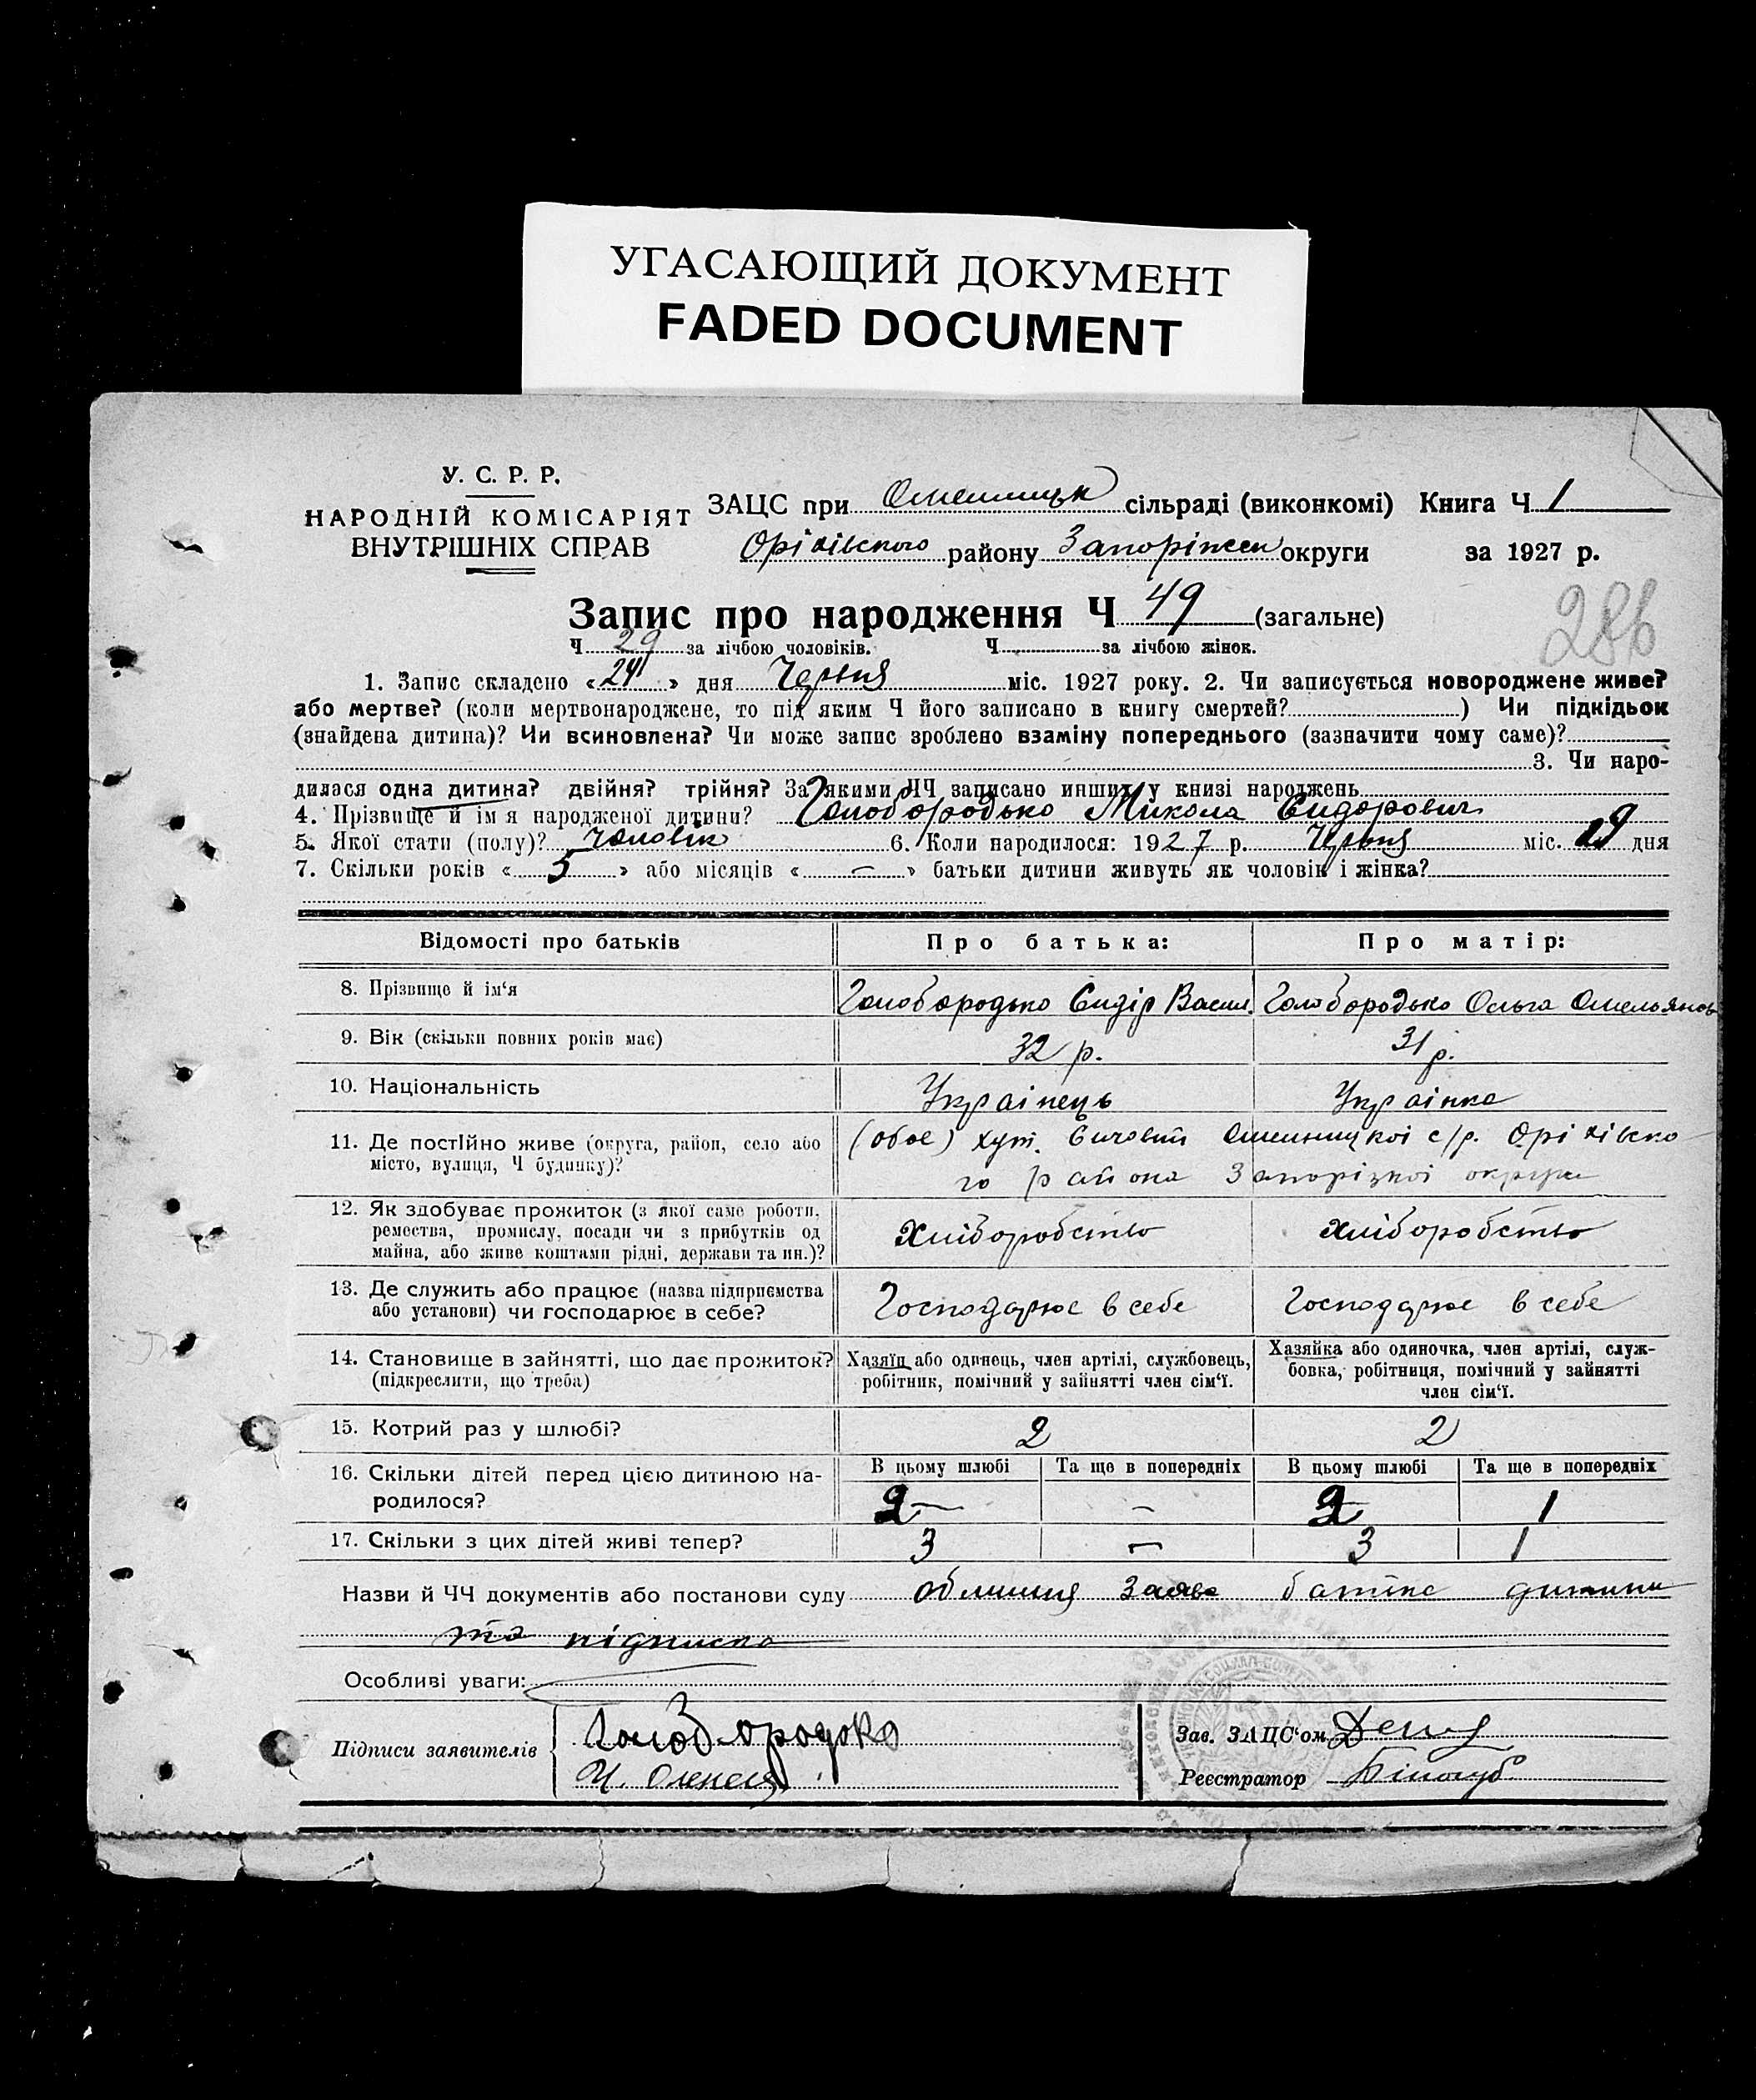 УГАСАЮЩИЙ ДОКУМЕНТ
FADED DOCUMENT
У. С. Р. Р.
НАРОДНІЙ КОМІСАРІЯТ
ВНУТРІШНІХ СПРАВ
ЗАЦС при сільраді (виконкомі) Книга Ч 1
Оріхівського району Запоріжськ округи за 1927 р.
Запис про народження Ч 49 (загальне)
286
Ч 29 за лічбою чоловіків. Ч за лічбою жінок.
1. Запис складено «24» дня Червня міс. 1927 року. 2. Чи записується новороджене живе?
або мертве? (коли мертвонароджене, то під яким Ч його записано в книгу смертей? ) Чи підкідьок
(знайдена дитина)? Чи всиновлена? Чи може запис зроблено взаміну попереднього (зазначити чому саме)?
3. Чи наро-
дилася одна дитина? двійня? трійня? За якими ЧЧ записано инших у книзі народжень
4. Прізвище й ім'я народженої дитини? Голобородько Микола Сидорович
5. Якої стати (полу)? Чоловік 6. Коли народилося: 1927 р. Червня міс. 19 дня
7. Скільки років «5» або місяців «—» батьки дитини живуть як чоловік і жінка?
Відомості про батьків Про батька: Про матір:
8. Прізвище й ім'я Голобородько Сидір Васил. Голобородько Ольга Омельянов
9. Вік (скільки повних років має) 32 р. 31 р.
10. Національність Українець Українка
11. Де постійно живе (округа, район, село або (обоє) хут. с/р. Оріхівско
місто, вулиця, Ч будинку)? го района Запорізкої округи
12. Як здобуває прожиток (з якої саме роботи,
ремества, промислу, посади чи з прибутків од Хліборобство хліборобство
майна, або живе коштами рідні, держави та ин.)?
13. Де служить або працює (назва підприємства
або установи) чи господарює в себе? Господарює в себе Господарює в себе
14. Становище в зайнятті, що дає прожиток? Хазяїн або одинець, член артілі, службовець, Хазяйка або одиночка, член артілі, служ-
(підкреслити, що треба) робітник, помічний у зайнятті член сім'ї. бовка, робітниця, помічний у зайнятті
член сім'ї.
15. Котрий раз у шлюбі? 2 2
16. Скільки дітей перед цією дитиною на- В цьому шлюбі Та ще в попередніх В цьому шлюбі Та ще в попередніх
родилося? 2 – – 2 1
17. Скільки з цих дітей живі тепер? 3 – 3 1
Назви й ЧЧ документів або постанови суду заява батька дитини
та підписка
Особливі уваги:
Підписи заявителів Голобородко Зав. ЗАЦС'ом
Реєстратор Білогуб